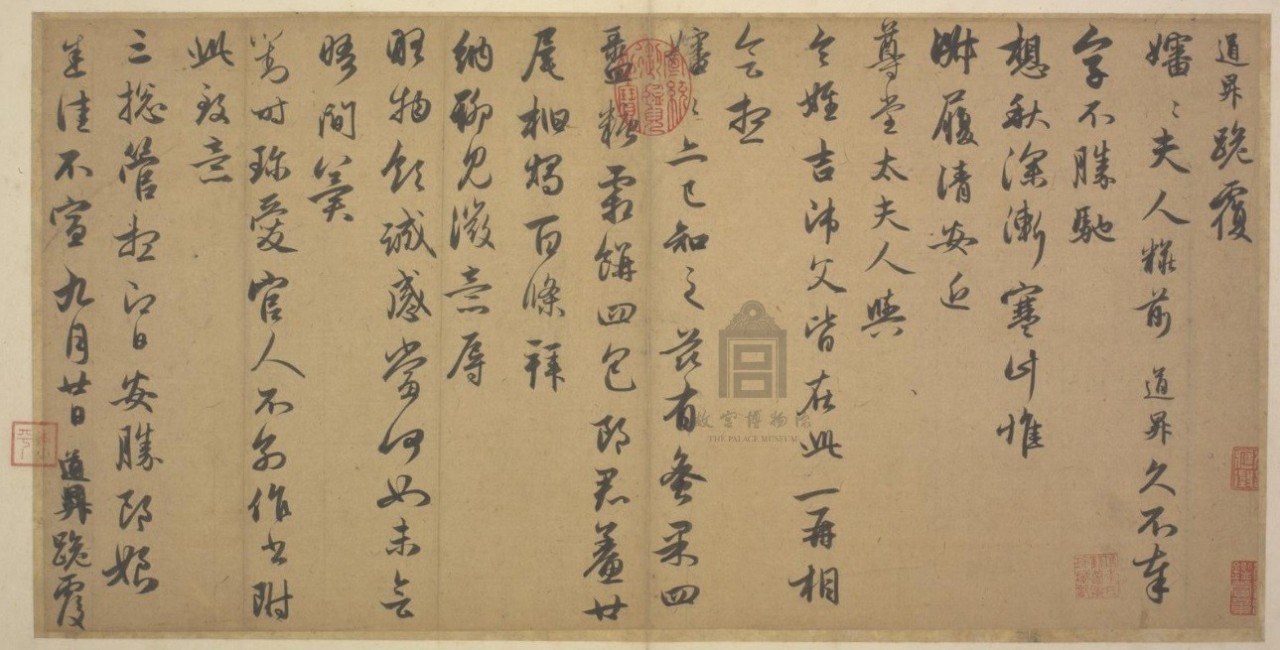 道昇跪覆
嬸〻夫人糚前 道昇久不奉
字不勝馳
想秋深漸寒計惟
淑履清安近
尊堂太夫人與
令姪吉師父皆在此一再相
會想
嬸〻亦已知之茲有蜜果四
盝糖霜餅四包郎君鯗廿
尾柏燭百條拜
納聊見微意辱
物領誠感當何如未會
晤間冀
對時珍愛官人不別作書附
此致意
三總管想即日安勝郎娘
佳不宣九月廿日 道昇跪覆
故宮博物院
THE PALACE MUSEUM